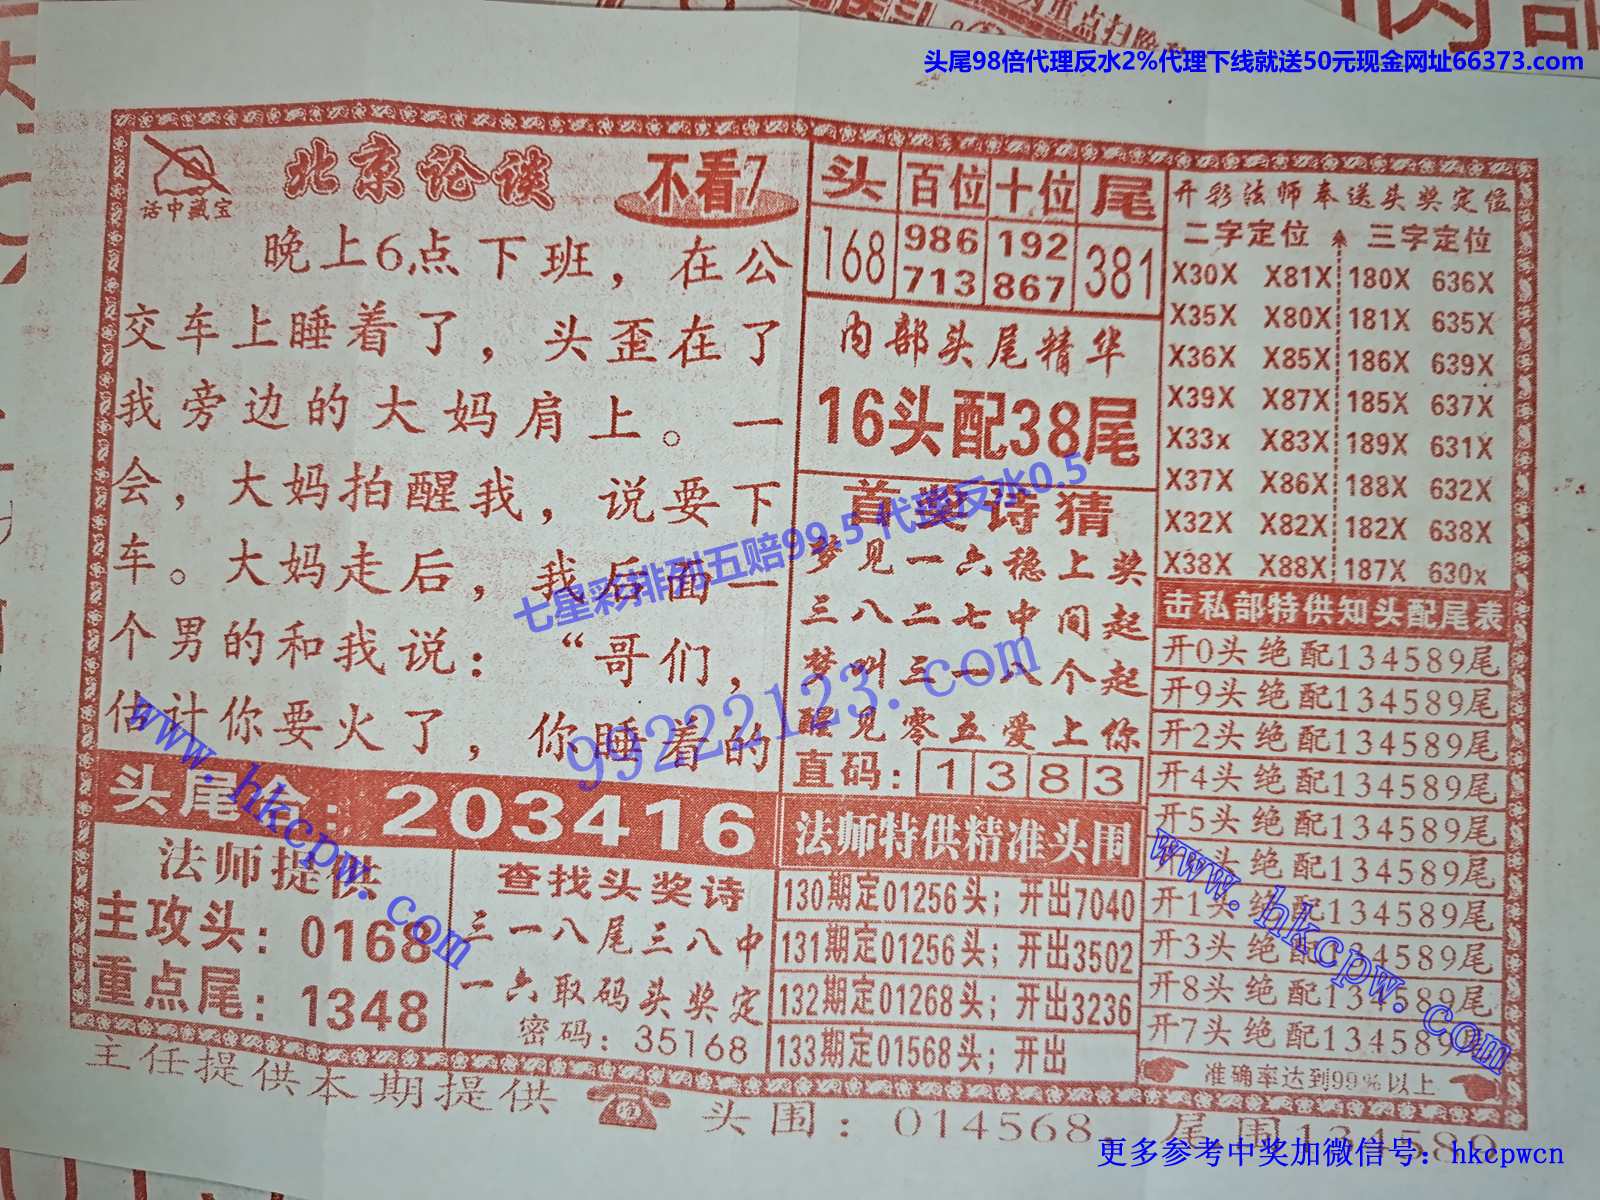 头尾98倍代理反水2%代理下线就送50元现金网址66373.com
话中藏宝
北京论谈
不看7
晚上6点下班，在公
交车上睡着了，头歪在了
我旁边的大妈肩上。一
会，大妈拍醒我，说要下
车。大妈走后，我后面一
个男的和我说：“哥们，
估计你要火了，你睡着的
头尾合：203416
法师提供
主攻头：0168
重点尾：1348
查找头奖诗
三一八尾三八中
一六取码头奖定
密码：35168
头 百位 十位 尾
168 986 192 381
713 867
内部头尾精华
16头配38尾
首奖诗猜
梦见一六稳上奖
三八二七中间起
梦叫三一八个起
醒见零五爱上你
直码：1383
法师特供精准头围
130期定01256头；开出7040
131期定01256头；开出3502
132期定01268头；开出3236
133期定01568头；开出
开彩法师奉送头奖定位
二字定位 三字定位
X30X X81X 180X 636X
X35X X80X 181X 635X
X36X X85X 186X 639X
X39X X87X 185X 637X
X33x X83X 189X 631X
X37X X86X 188X 632X
X32X X82X 182X 638X
X38X X88X 187X 630x
击私部特供知头配尾表
开0头绝配134589尾
开9头绝配134589尾
开2头绝配134589尾
开4头绝配134589尾
开5头绝配134589尾
头绝配134589尾
开1头绝配134589尾
开3头绝配134589尾
开8头绝配134589尾
开7头绝配134589尾
准确率达到99%以上
主任提供本期提供 头围：014568，尾围134589
七星彩排列五赔99.5 代理反水0.5
99222123.com
www.hkcpw.com
www.hkcpw.com
更多参考中奖加微信号：hkcpwcn